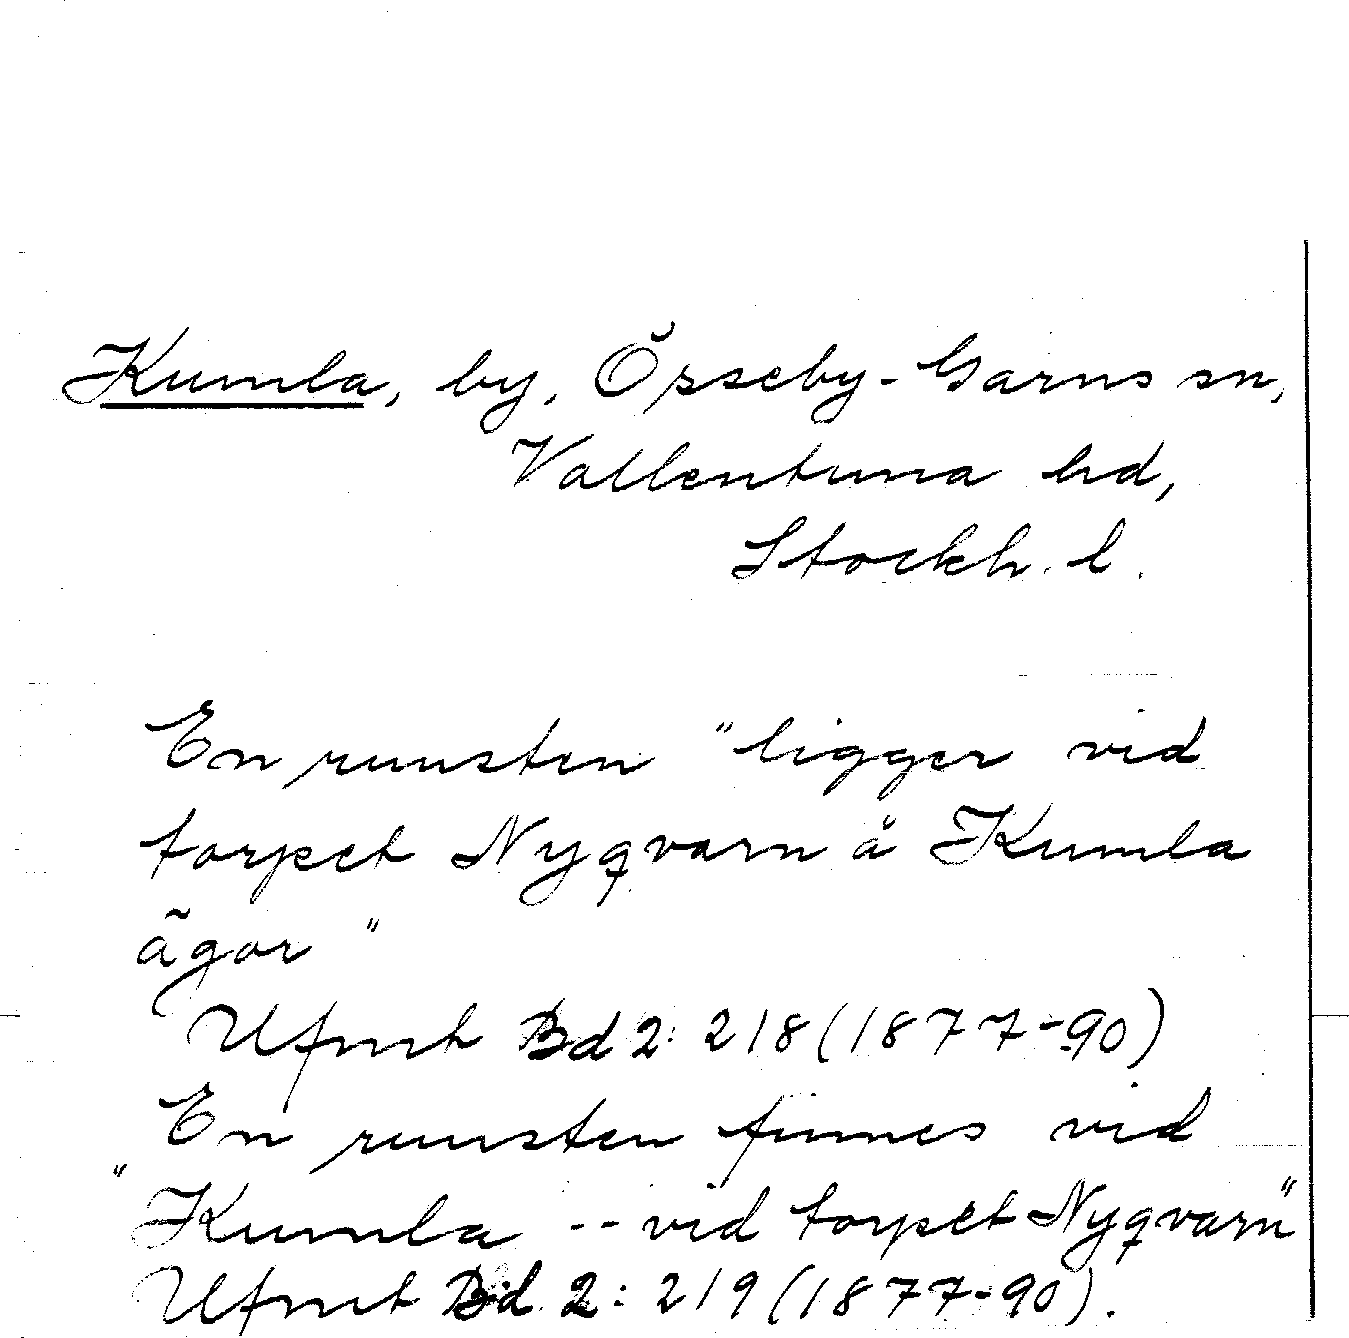 Kumla, by, Össeby-Garns sn,
Vallentuna hd,
Stockh. l.
En runsten "ligger vid
torpet Nyqvarn å Kumla
ägor"
Ufmt Bd 2: 218 (1877-90)
En runsten finnes vid
"Kumla -- vid torpet Nyqvarn"
Ufmt Bd. 2: 219 (1877-90).